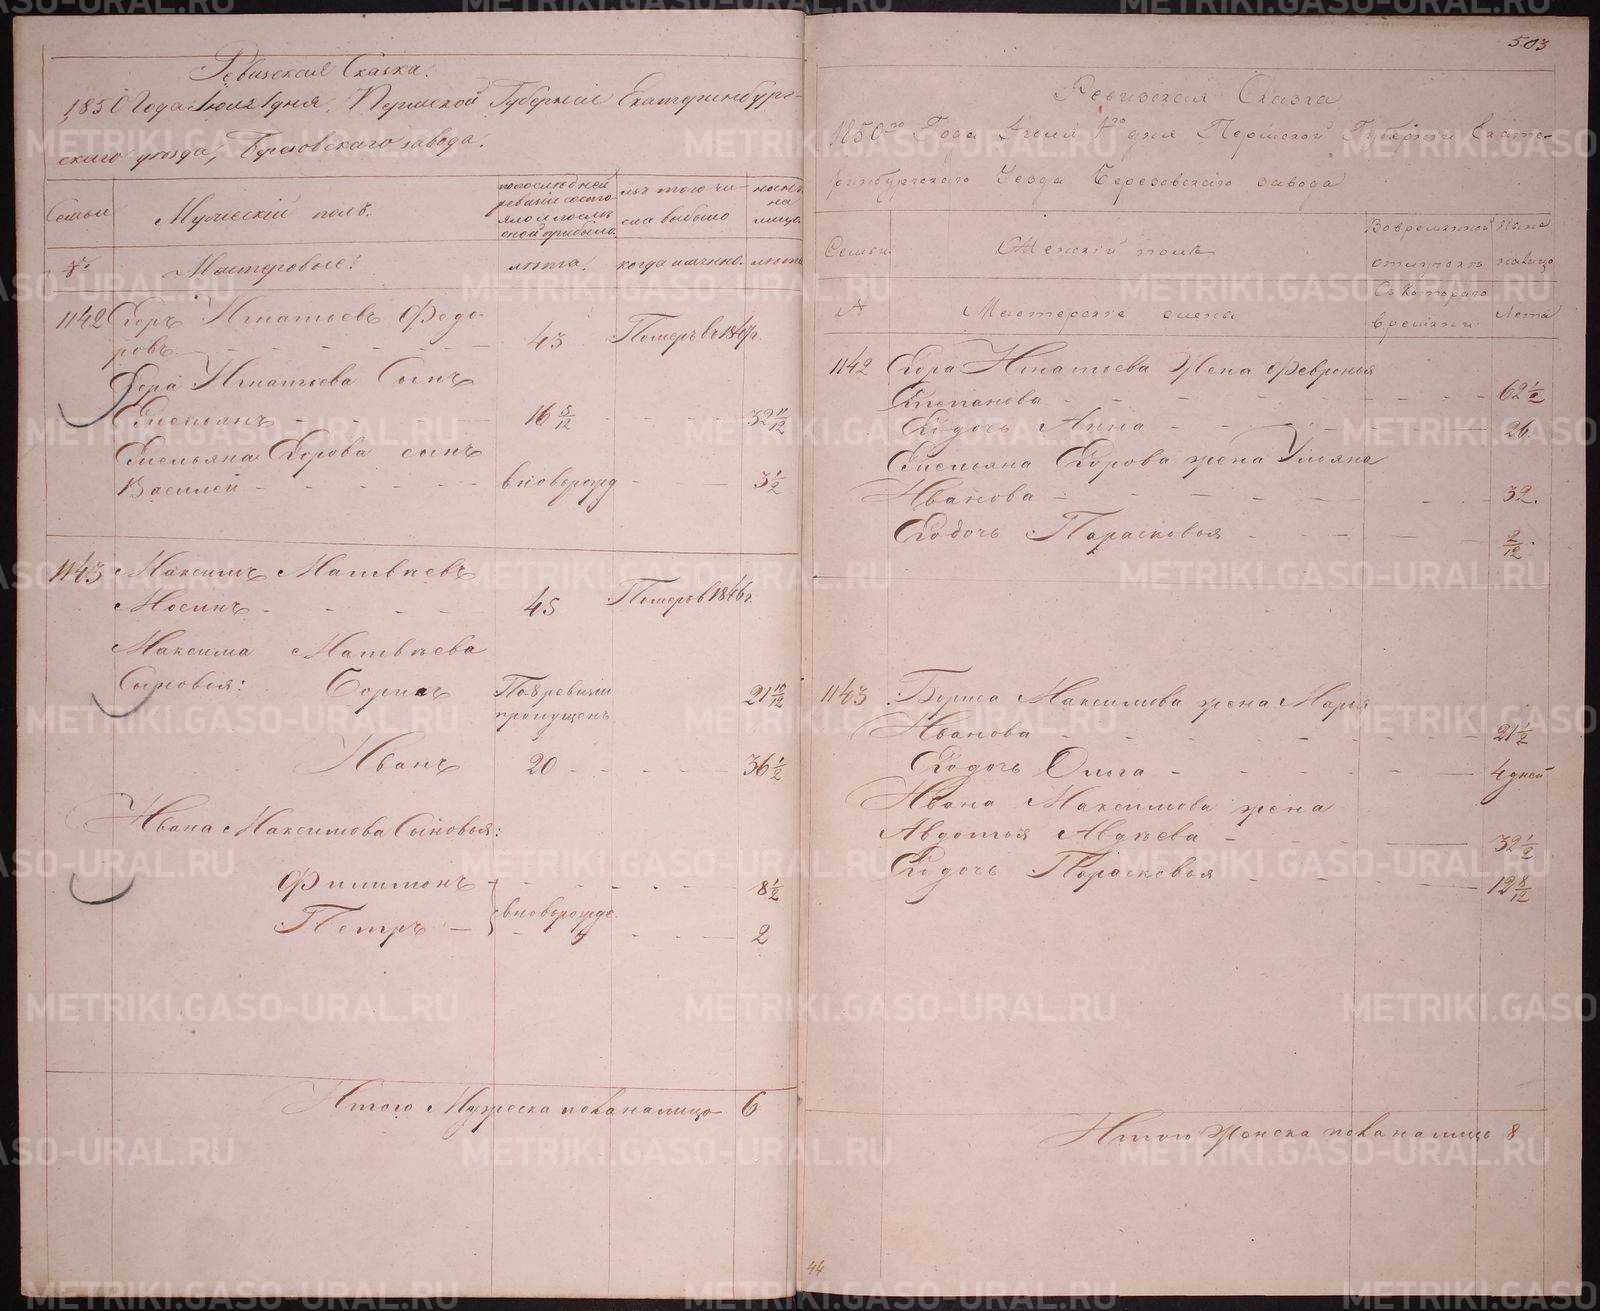 Ревизская Сказка.
1850 Года Июля 1 дня, Пермской Губерніи Екатеринбург-
скаго уезда, Березовскаго завода.
Семьи
Мужескій полъ.
попоследней
ревизіи состо-
яло и после
оной прибыло.
изъ того чи-
сла выбыло
ныне
на
лицо
№
Мастеровые:
лета.
когда именно.
лета
1142 Егоръ Игнатьевъ Федо-
ровъ 43 Померъ въ 1847 г.
Егора Игнатьева Сынъ
Емельянъ 16 5/12 32 11/12
Емельяна Егорова сынъ
Василей вновьрожд 3 1/2
1143 Максимъ Матвеевъ
Мосинъ 45 Померъ в 1846 г.
Максима Матвеева
Сыновья: Борисъ По 8 ревизіи
пропущенъ 21 10/12
Иванъ 20 36 1/2
Ивана Максимова Сыновья:
Филимонъ 8 1/2
вновьрожде.
Петръ 2
Итого Мужеска пола налицо 6
503
Ревизская Сказка
1850го Года Июля 1го дня Пермской Губерніи Екате-
ринбургскаго Уезда Березовскаго завода
Семьи
Женскій полъ
Вовременной
отлучкъ
Ныне
налицо
№
Мастерскіе жены
Съ Котораго
времяни
Лета
1142 Егора Игнатьева Жена Февронья
Степанова 62 1/2
Его дочь Анна 26.
Емельяна Егорова жена Ульяна
Иванова 32.
Его дочь Парасковья 2/12.
1143 Бориса Максимова жена Марья
Иванова 21 1/2
Его дочь Ольга 4 дней
Ивана Максимова жена
Авдотья Авдеева 32 1/2
Его дочь Парасковья 12 8/12
Итого Женска пола налицо 8
44
METRIKI.GASO-URAL.RU